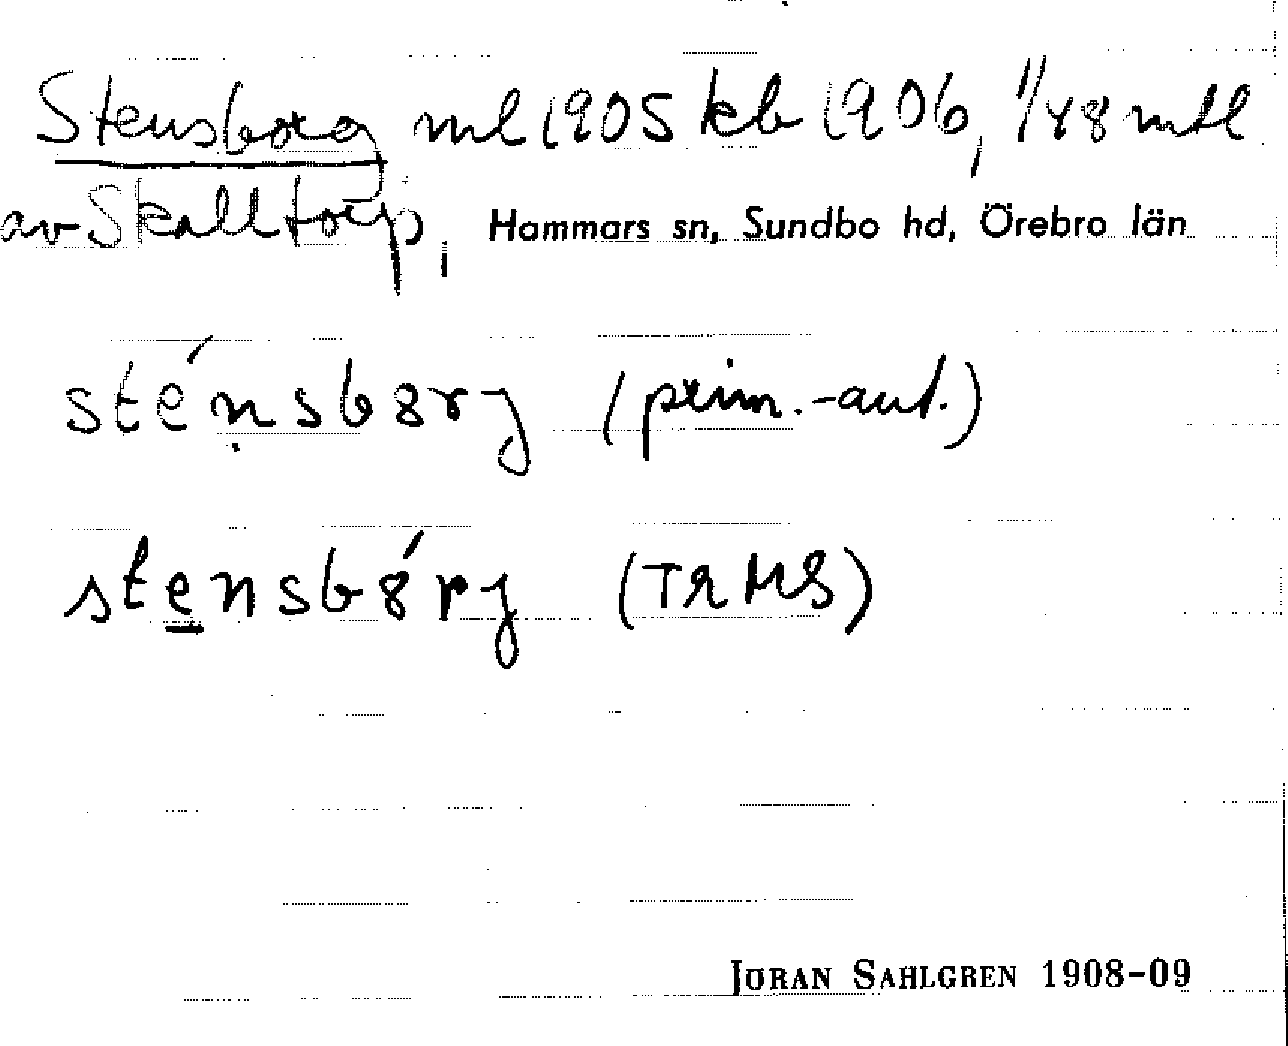 Stensborg ml 1905 kb 1906, 1/48 mtl
av Skalltorp, Hammars sn, Sundbo hd, Örebro län
sténsb8rj (prim.-aut.)
stensb8́rj (TRMS)
JÖRAN SAHLGREN 1908-09